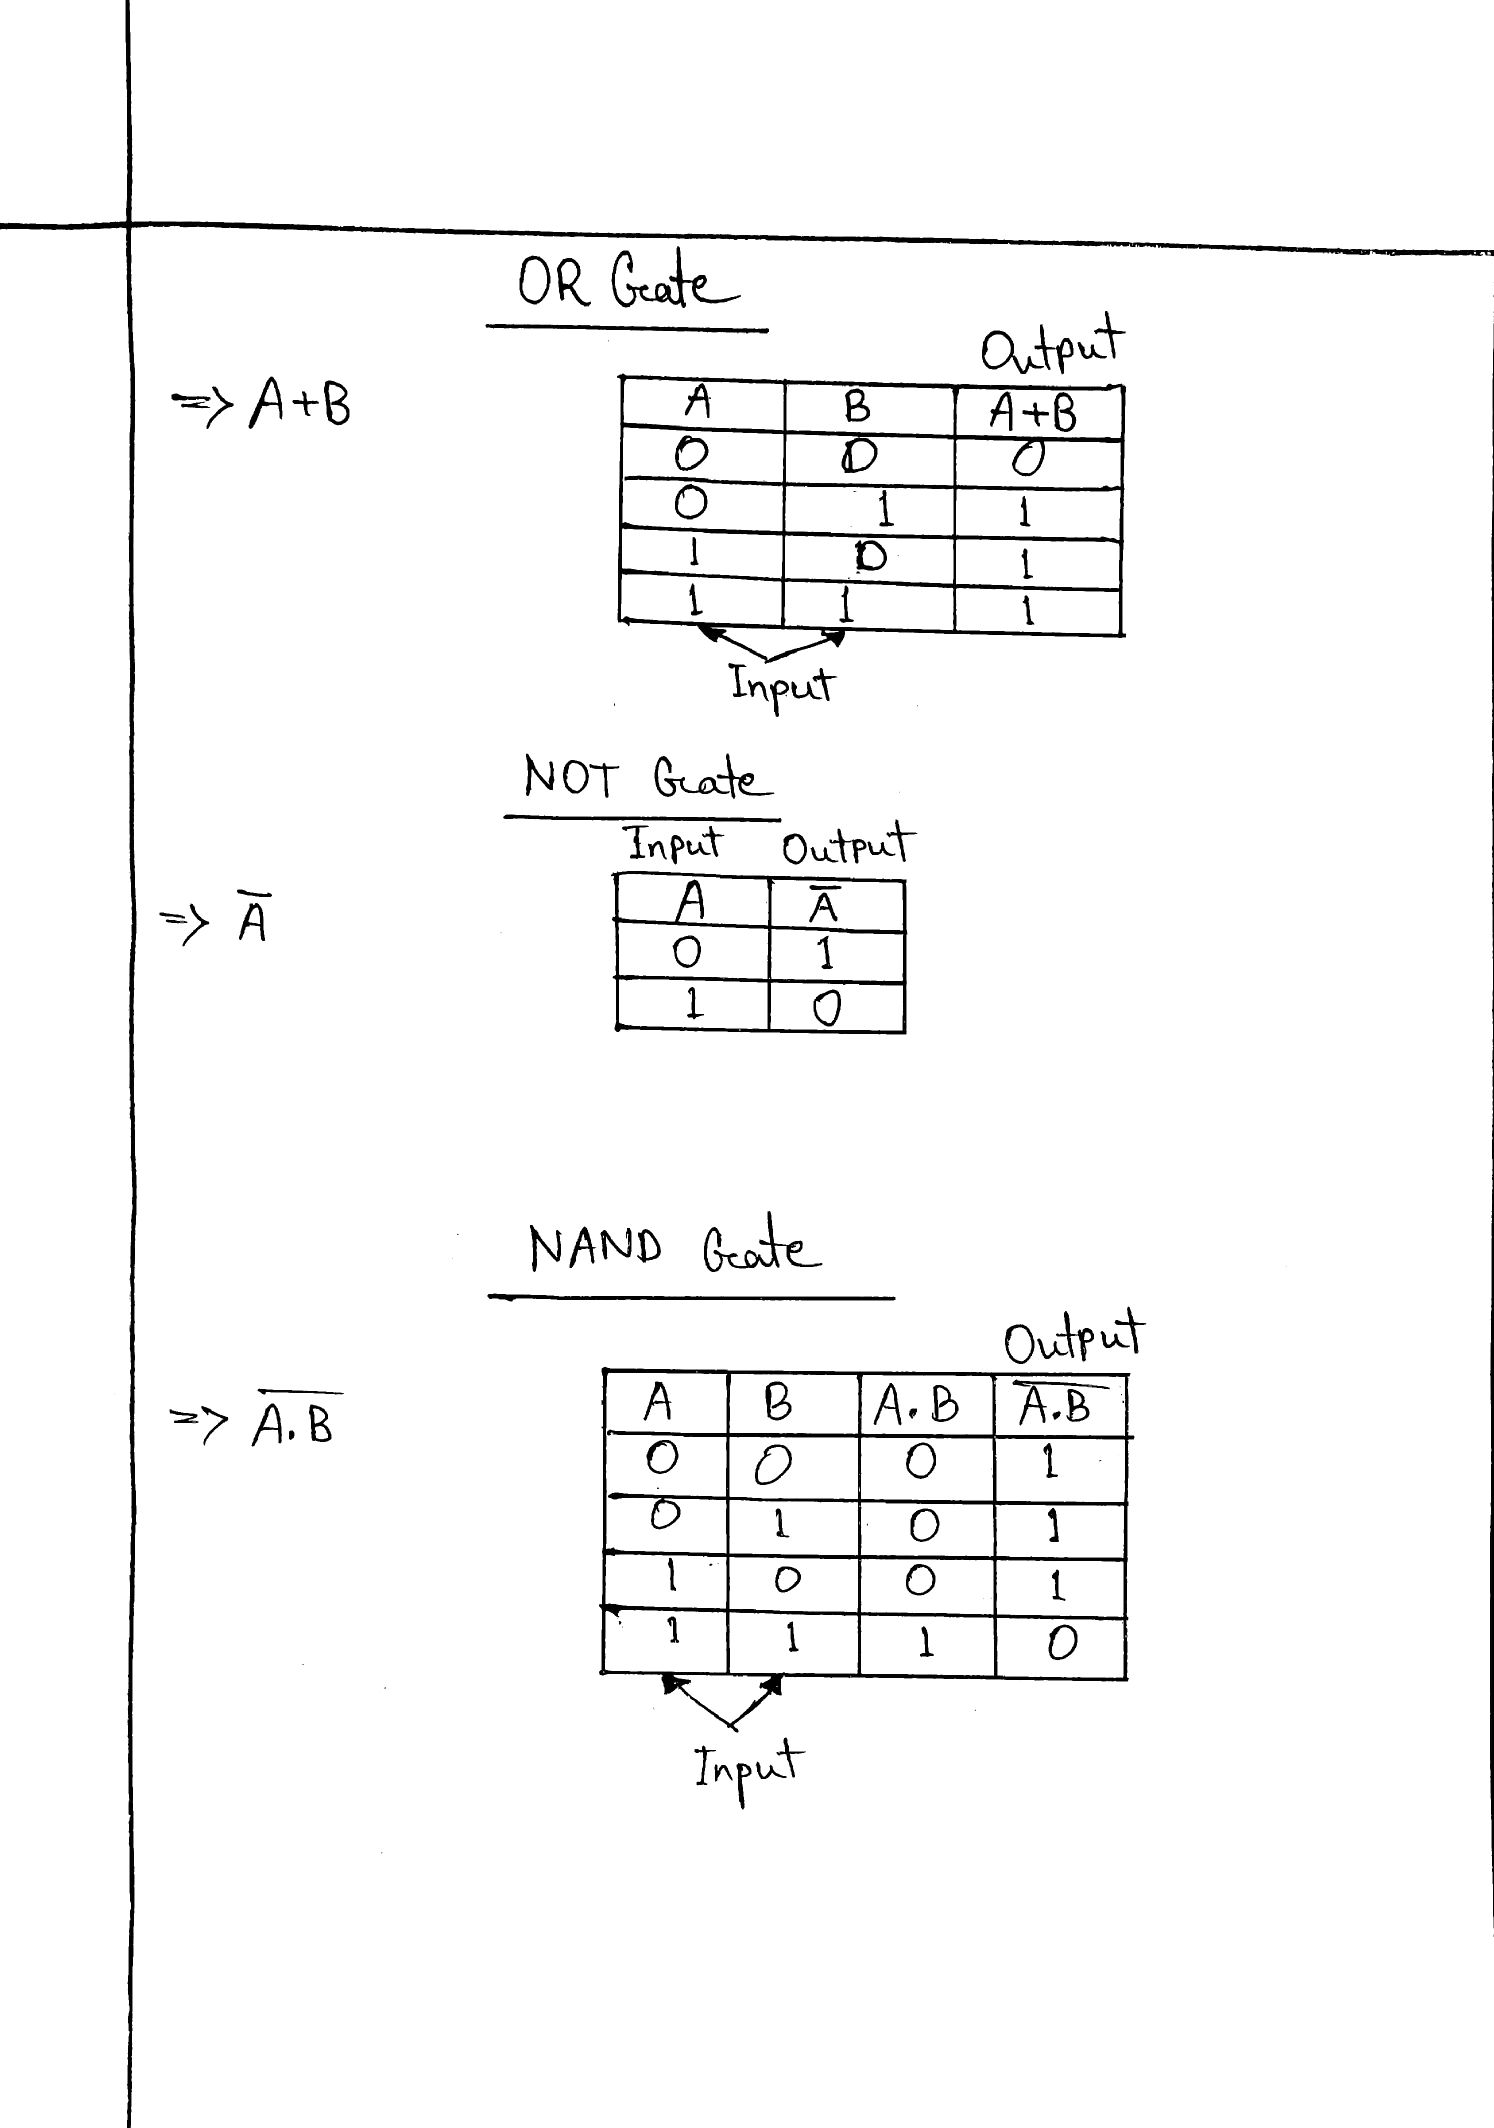 OR Gate
Output
=> A+B
A B A+B
0 0 0
0 1 1
1 0 1
1 1 1
Input
NOT Gate
Input Output
=> A̅
A A̅
0 1
1 0
NAND Gate
Output
=> A̅.̅B̅
A B A.B A̅.̅B̅
0 0 0 1
0 1 0 1
1 0 0 1
1 1 1 0
Input